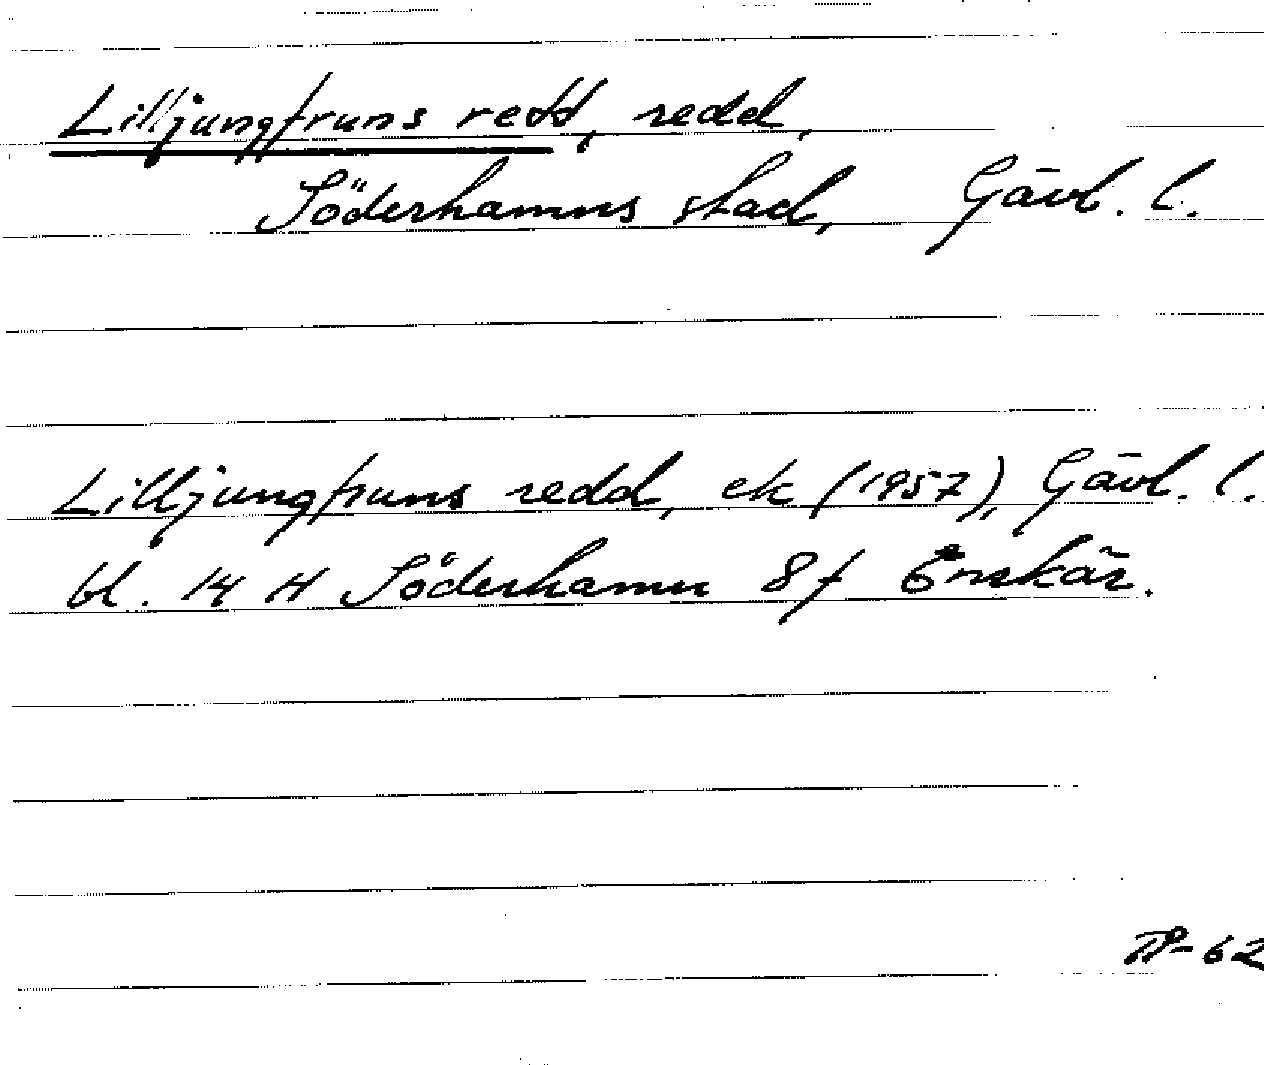 Lilljungfruns redd, redd,
Söderhamns stad, Gävl. l.
Lilljungfruns redd, ek (1957), Gävl. l.
bl. 14 H Söderhamn 8f Enskär.
TP-62